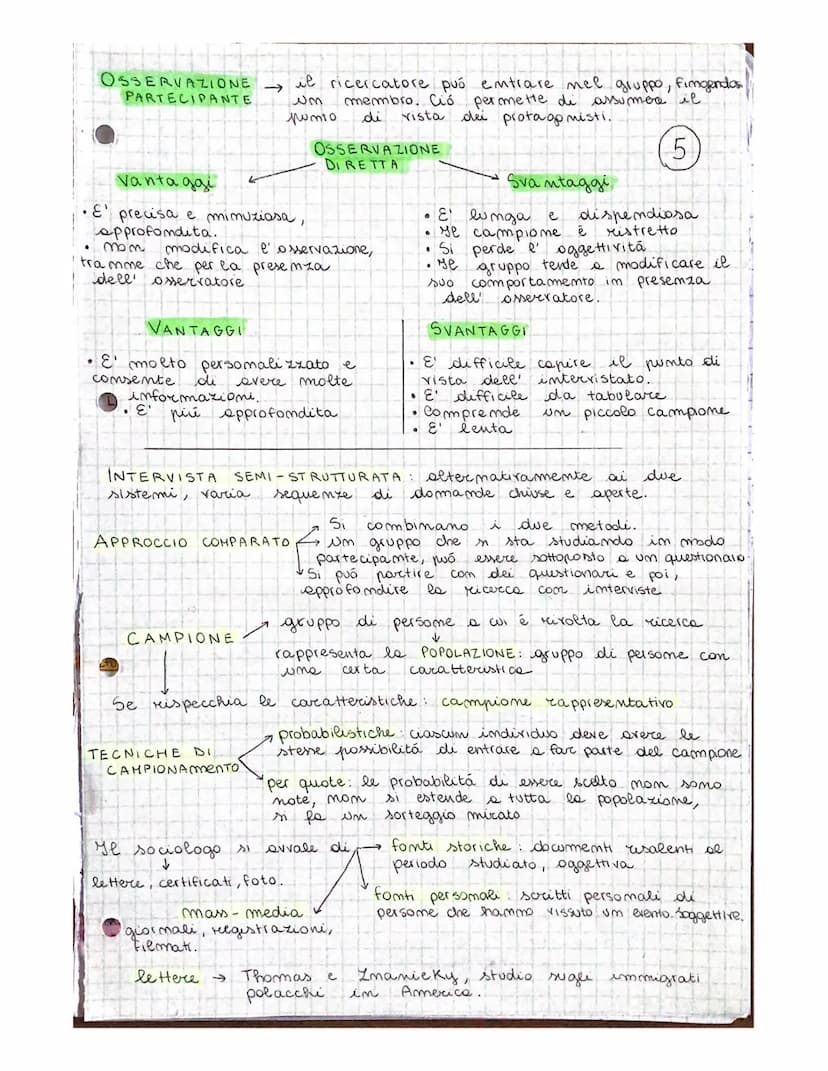 OSSERVAZIONE → il ricercatore può entrare nel gruppo, fingendosi
PARTECIPANTE un membro. Ciò permette di assumere il
punto di vista dei protagonisti.
5
OSSERVAZIONE
DIRETTA
Vantaggi
• E' precisa e minuziosa,
approfondita.
• non modifica l'osservazione,
tramne che per la presenza
dell' osservatore
Svantaggi
• E' lunga e dispendiosa
• Il campione è ristretto
• Si perde l' oggettività
• Il gruppo tende a modificare il
suo comportamento in presenza
dell' osservatore.
VANTAGGI
• E' molto personalizzato e
consente di avere molte
informazioni.
• E' più approfondita
SVANTAGGI
• E' difficile capire il punto di
vista dell' intervistato.
• E' difficile da tabulare
• Comprende un piccolo campione
• E' lenta
INTERVISTA SEMI-STRUTTURATA: alternativamente ai due
sistemi, varia sequenze di domande chiuse e aperte.
APPROCCIO COMPARATO
Si combinano i due metodi.
→ Un gruppo che si sta studiando in modo
partecipante, può essere sottoposto a un questionario
Si può partire con dei questionari e poi,
approfondire la ricerca con interviste
CAMPIONE
gruppo di persone a cui è rivolta la ricerca
↓
rappresenta la POPOLAZIONE: gruppo di persone con
una certa caratteristica
Se rispecchia le caratteristiche: campione rappresentativo
TECNICHE DI
CAMPIONAMENTO
probabilistiche: ciascun individuo deve avere le
stesse possibilità di entrare a far parte del campione
per quote: le probabilità di essere scelto non sono
note, non si estende a tutta la popolazione,
si fa un sorteggio mirato
Il sociologo si avvale di → fonti storiche: documenti risalenti al
periodo studiato, oggettiva
↓
lettere, certificati, foto.
fonti personali: scritti personali di
persone che hanno vissuto un evento. Soggettive.
mass-media
giornali, registrazioni,
filmati.
lettere → Thomas e Znanicky, studio sugli immigrati
polacchi in America.